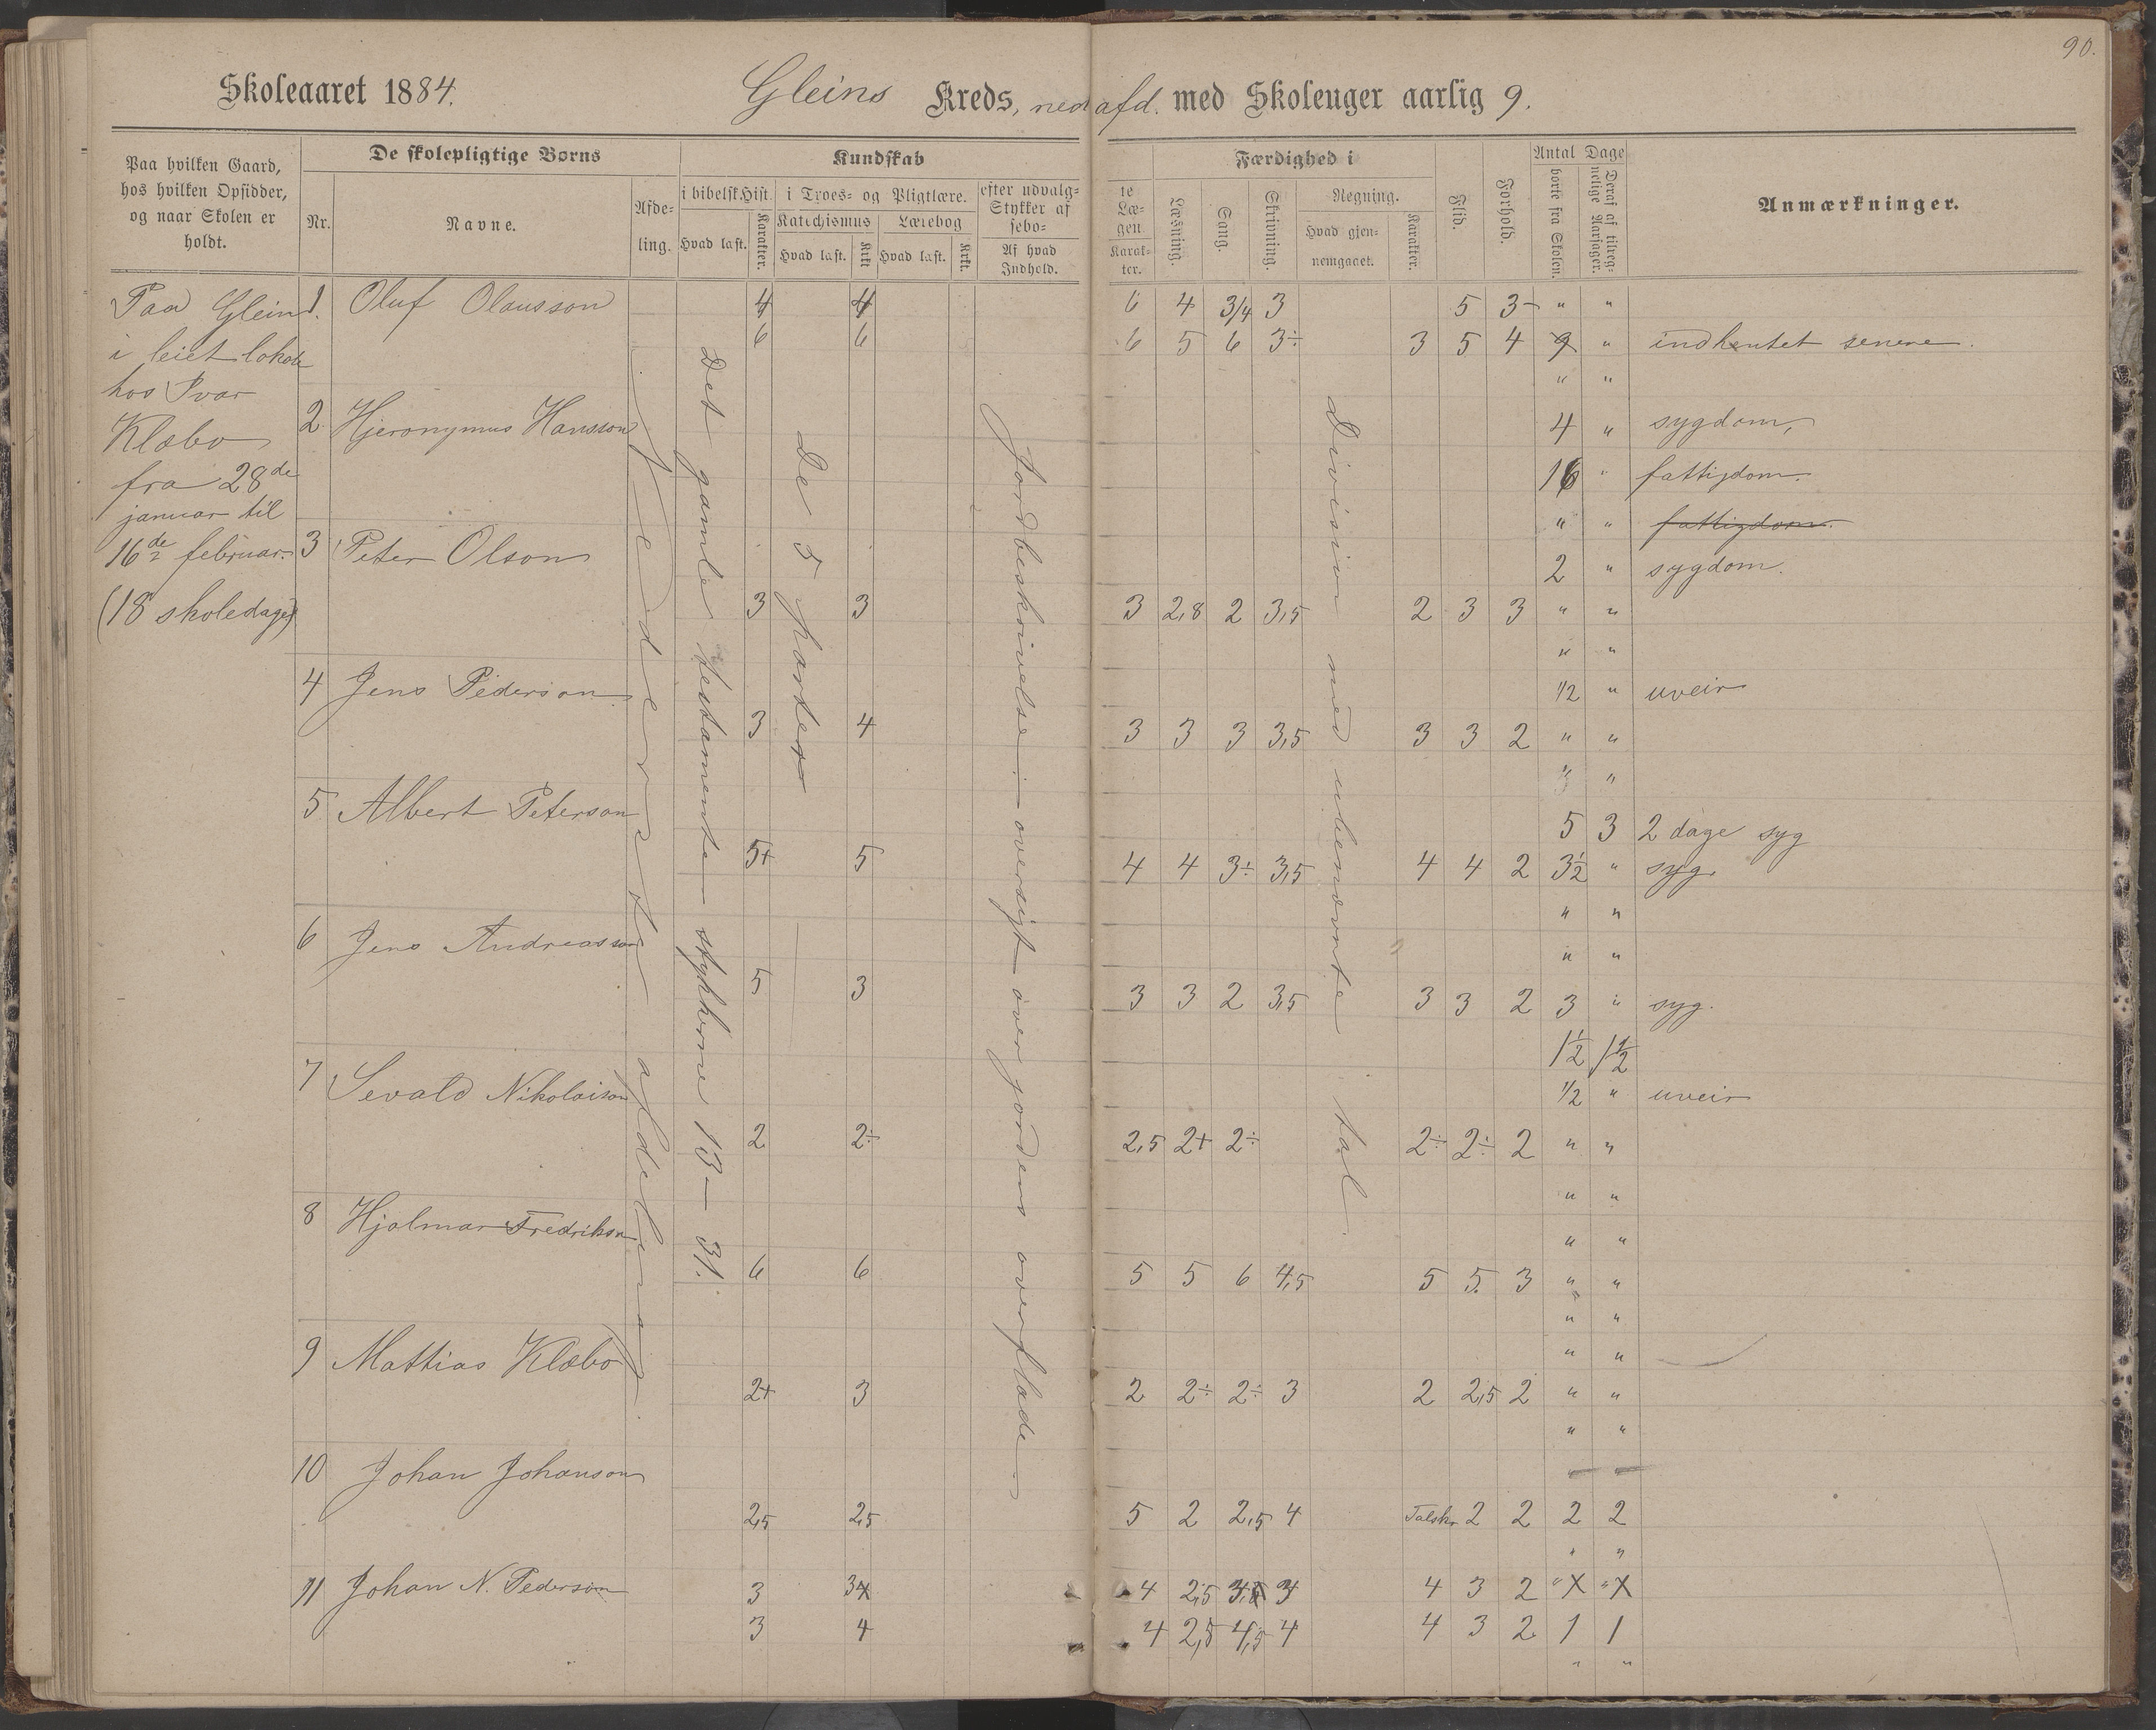 90.
Skoleaaret 1884. Gleins Kreds, ned afd. med Skoleuger aarlig 9.
Paa hvilken Gaard, hos hvilken Opsidder, og naar Skolen er holdt.
De skolepligtige Børns
Nr.
Navne.
Afde-
ling.
Kundskab
i bibelsk Hist.
Hvad læst.
Karakter.
i Troes- og Pligtlære.
Katechismus
Hvad læst.
Krkt
Lærebog
Hvad læst.
Krkt.
efter udvalg-
Stykker af
sebo-
Af hvad
Indhold.
te
Læ-
gen
Karak-
ter.
Færdighed i
Læsning.
Sang.
Skrivning.
Regning.
Hvad gjen-
nemgaaet.
Karakter.
Flid.
Forhold.
Antal Dage
borte fra Skolen.
Deraf af tilreg-
nelige Aarsager.
Anmærkninger.
Paa Glein
i leiet lokale
hos Ivar
Klæbo
fra 28de
januar til
16de februar.
(18 skoledage)
Nederste afdeling.
Det gamle testamente stykkerne 13 – 31.
De 5 parter
Jordbeskrivelse: oversigt over jordens overflade
Division med ubenævnte tal.
1. Oluf Olausson 4 4 6 4 3/4 3 5 3- " "
6 6 6 5 6 3÷ 3 5 4 9 " indhentet senere.
" "
2 Hjeronymus Hansson 4 " sygdom,
16 " fattigdom.
" " fattigdom.
3 Peter Olson 2 " sygdom.
3 3 3 2,8 2 3,5 2 3 3 " "
" "
4 Jens Pederson 1/2 " uveir
3 4 3 3 3 3,5 3 3 2 " "
" "
5 Albert Peterson 5 3 2 dage syg
5+ 5 4 4 3÷ 3,5 4 4 2 3½ " syg.
" "
6 Jens Andreasson " "
5 3 3 3 2 3,5 3 3 2 3 " syg.
1½ 1½
7 Sevald Nikolaison 1/2 " uveir
2 2÷ 2,5 2+ 2÷ 2÷ 2÷ 2 " "
" "
8 Hjalmar Fredrikson " "
6 6 5 5 6 4,5 5 5. 3 " "
" "
9 Mattias Klæbo " "
2+ 3 2 2÷ 2÷ 3 2 2,5 2 " "
" "
10 Johan Johanson
2,5 2,5 5 2 2,5 4 Talskr. 2 2 2 2
" "
11 Johan N. Pederson 3 3 4 2,5 3 4 3 2 " X " X
3 4 4 2,5 4,5 4 4 3 2 1 1
" "